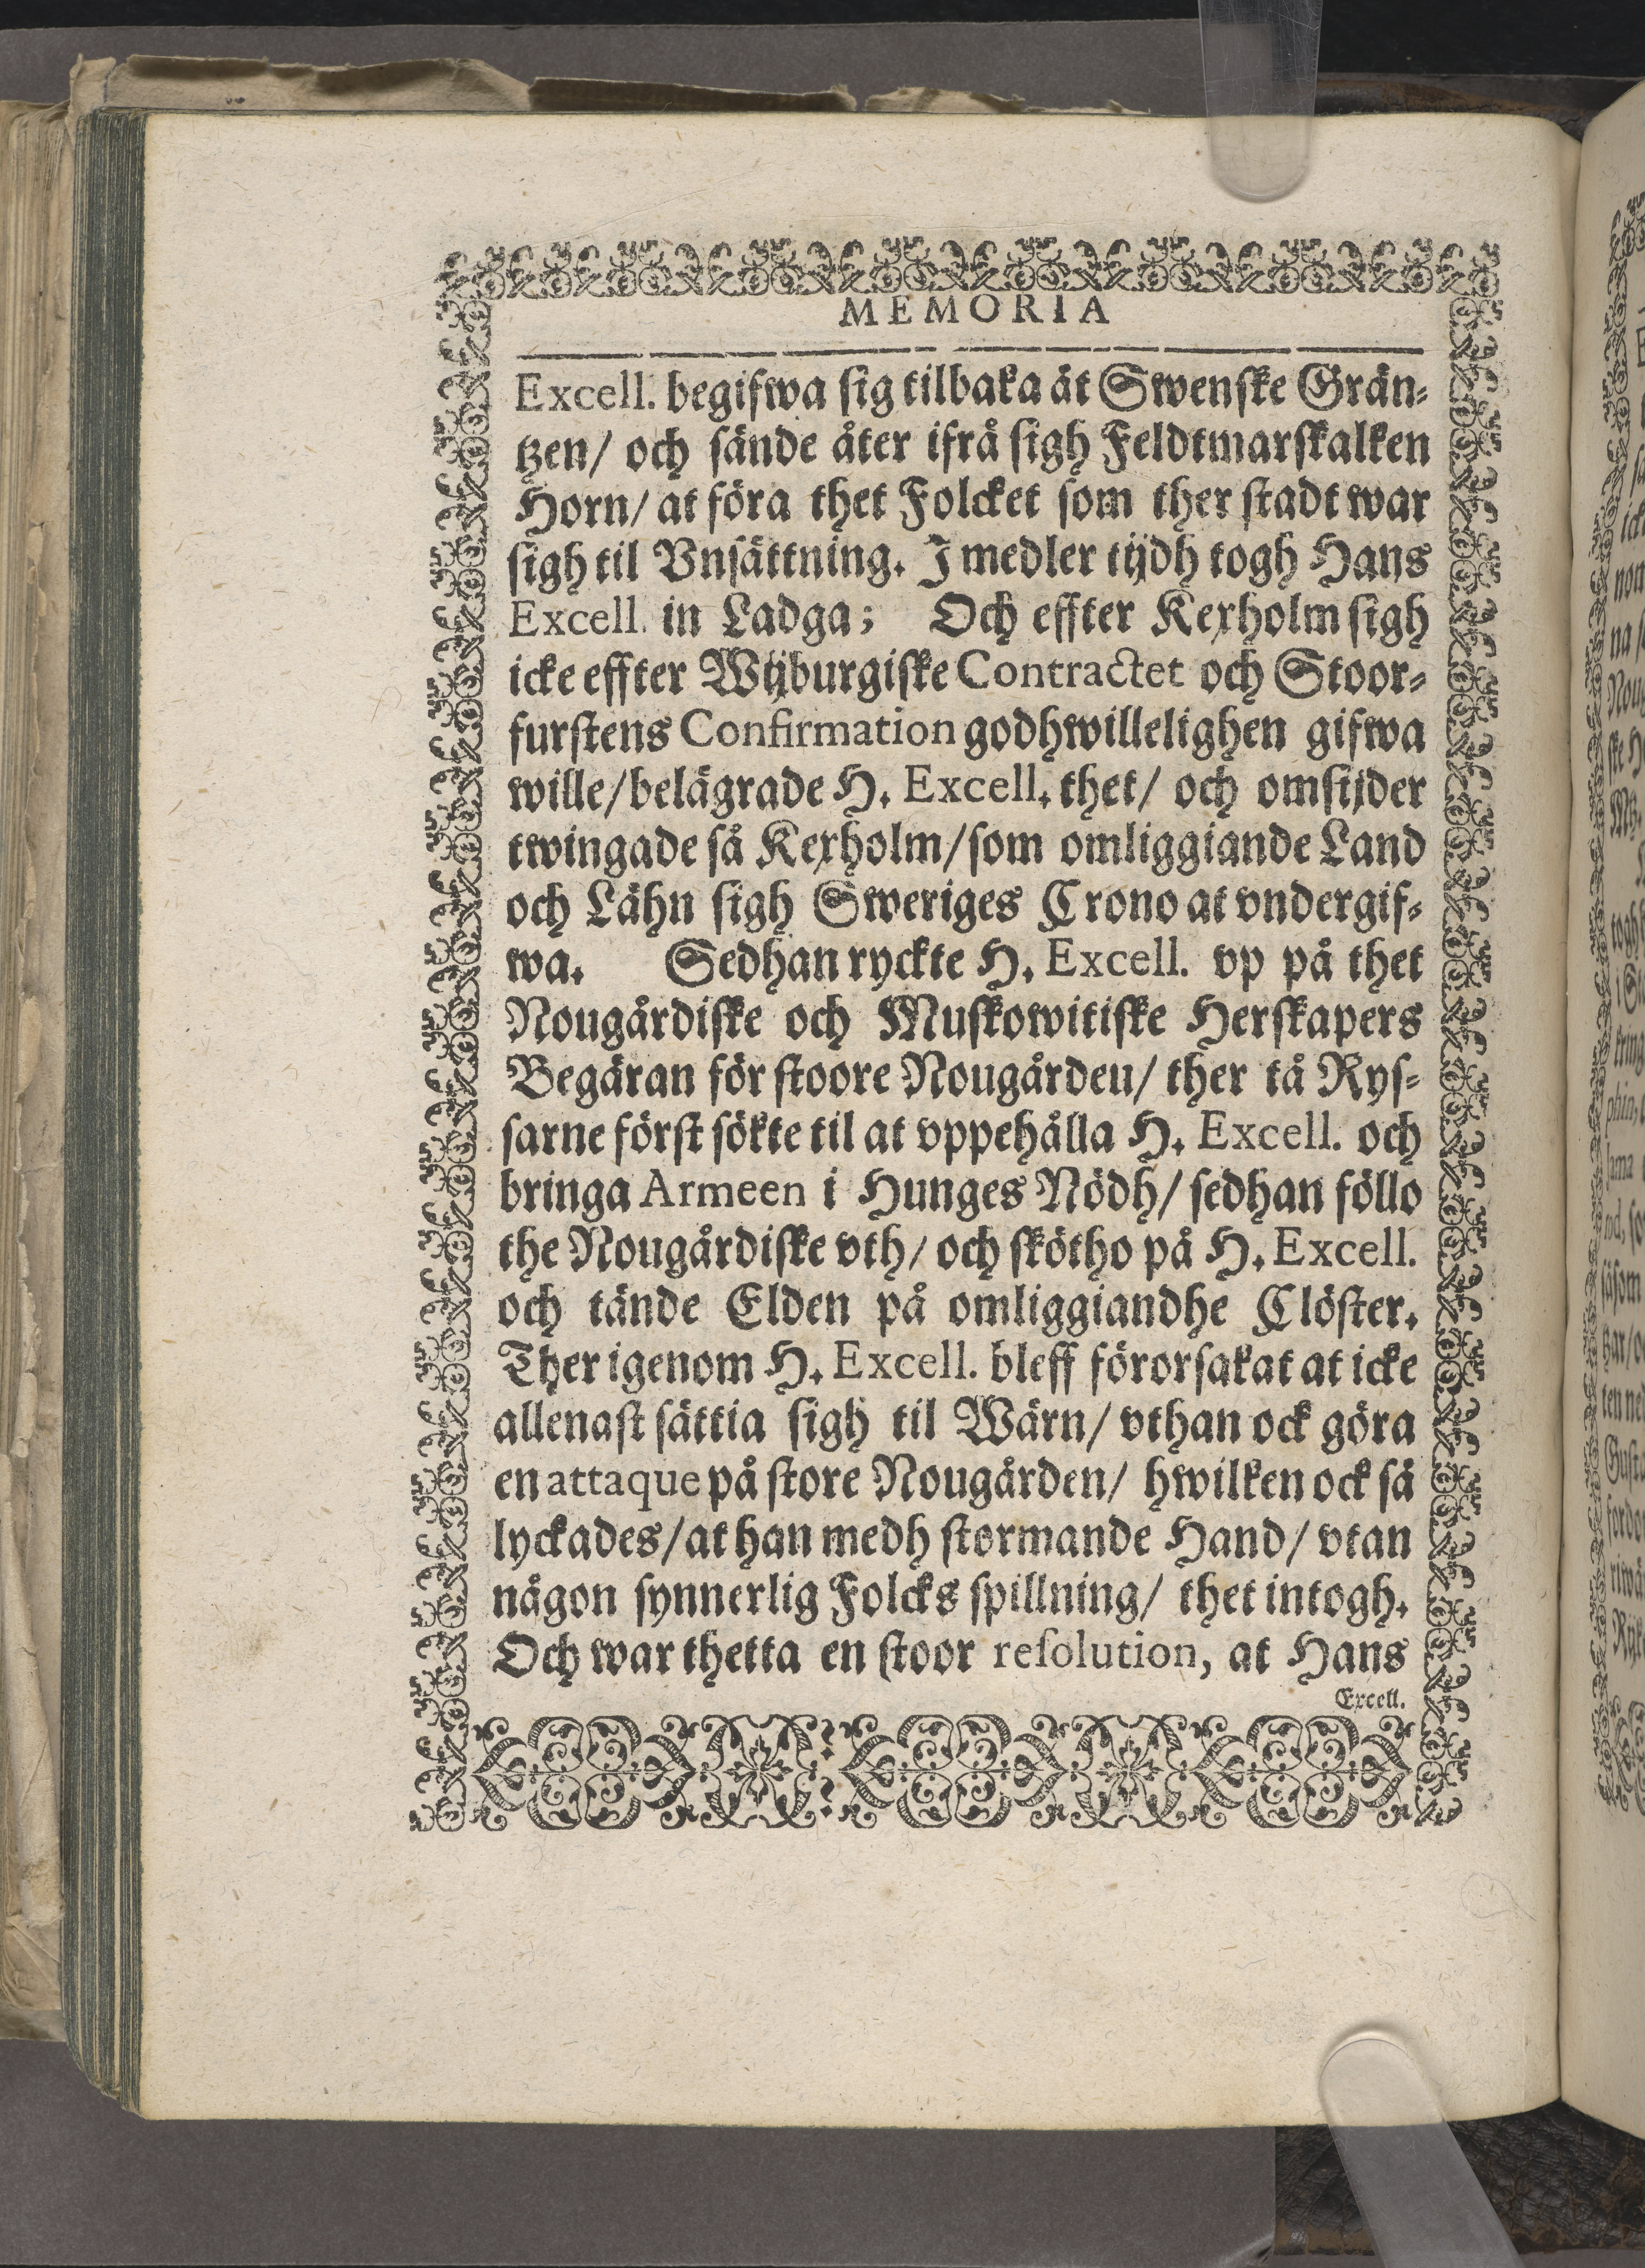 MEMORIA
Excell. begifwa sig tilbaka ät Swenske Grän-
tzen/ och sände åter ifrå sigh Feldtmarskalken
Horn/ at föra thet Folcket som ther stadt war
sigh til Vnsättning. J medler tijdh togh Hans
Excell. in Ladga; Och effter Kexholm sigh
icke effter Wijburgiske Contractet och Stoor-
furstens Confirmation godhwillelighen gifwa
wille/ belägrade H. Excell. thet/ och omsijder
twingade så Kexholm/ som omliggiande Land
och Lähn sigh Sweriges Crono at vndergif-
wa. Sedhan ryckte H. Excell. vp på thet
Nougårdiske och Muskowitiske Herskapers
Begäran för stoore Nougården/ ther tå Rys-
sarne först sökte til at vppehålla H. Excell. och
bringa Armeen i Hunges Nödh/ sedhan föllo
the Nougårdiske vth/ och skötho på H. Excell.
och tände Elden på omliggiandhe Clöster.
Ther igenom H. Excell. bleff förorsakat at icke
allenast sättia sigh til Wärn/ vthan ock göra
en attaque på store Nougården/ hwilken ock så
lyckades/ at han medh stormande Hand/ vtan
någon synnerlig Folcks spillning/ thet intogh.
Och war thetta en stoor resolution, at Hans
Excell.